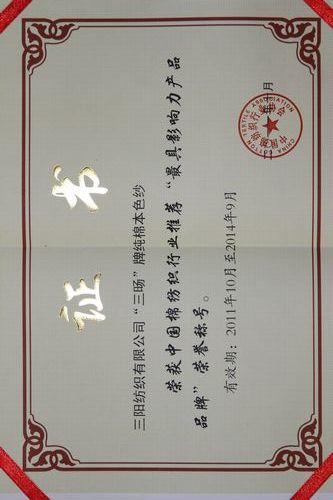 证书
三阳纺织有限公司“三旸”牌纯棉本色纱
荣获中国棉纺织行业推荐“最具影响力产品
品牌”荣誉称号。
有效期：2011年10月至2014年9月
CHINA COTTON TEXTILE ASSOCIATION